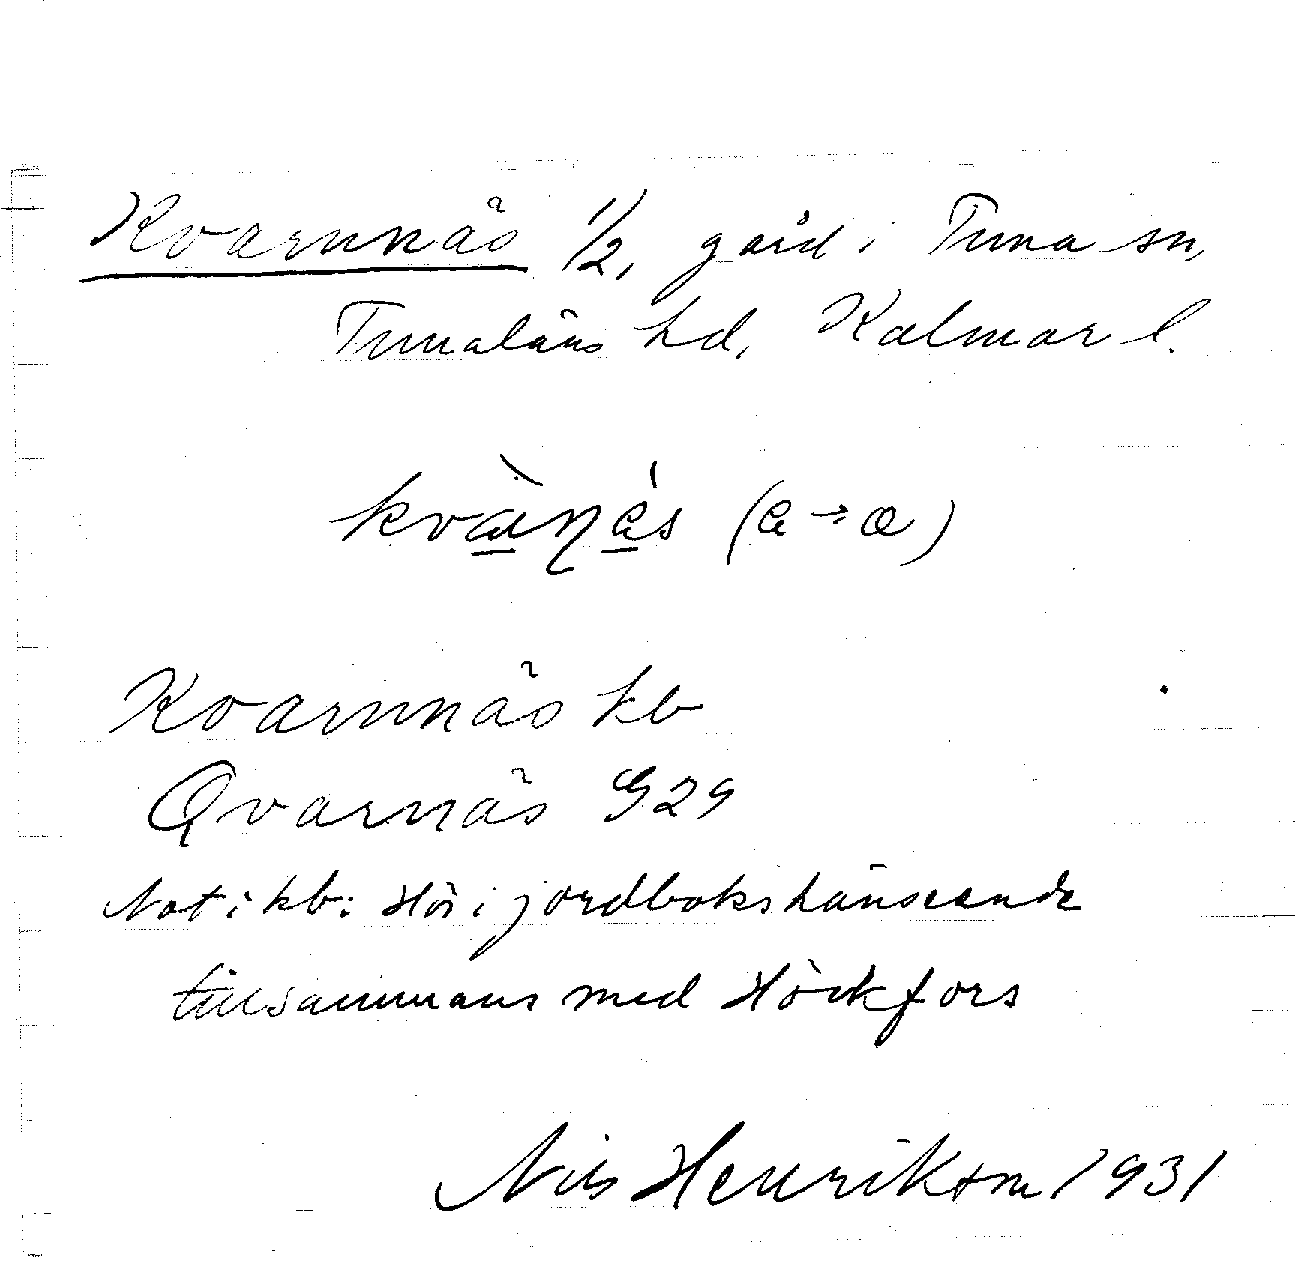 Kvarnnäs 1/2, gård i Tuna sn,
Tunaläns hd, Kalmar l.
Kvarnnäs kb
Qvarnäs G29
Not i kb: Hör i jordbokshänseende
tillsammans med Höckfors
Nils Henrikson 1931